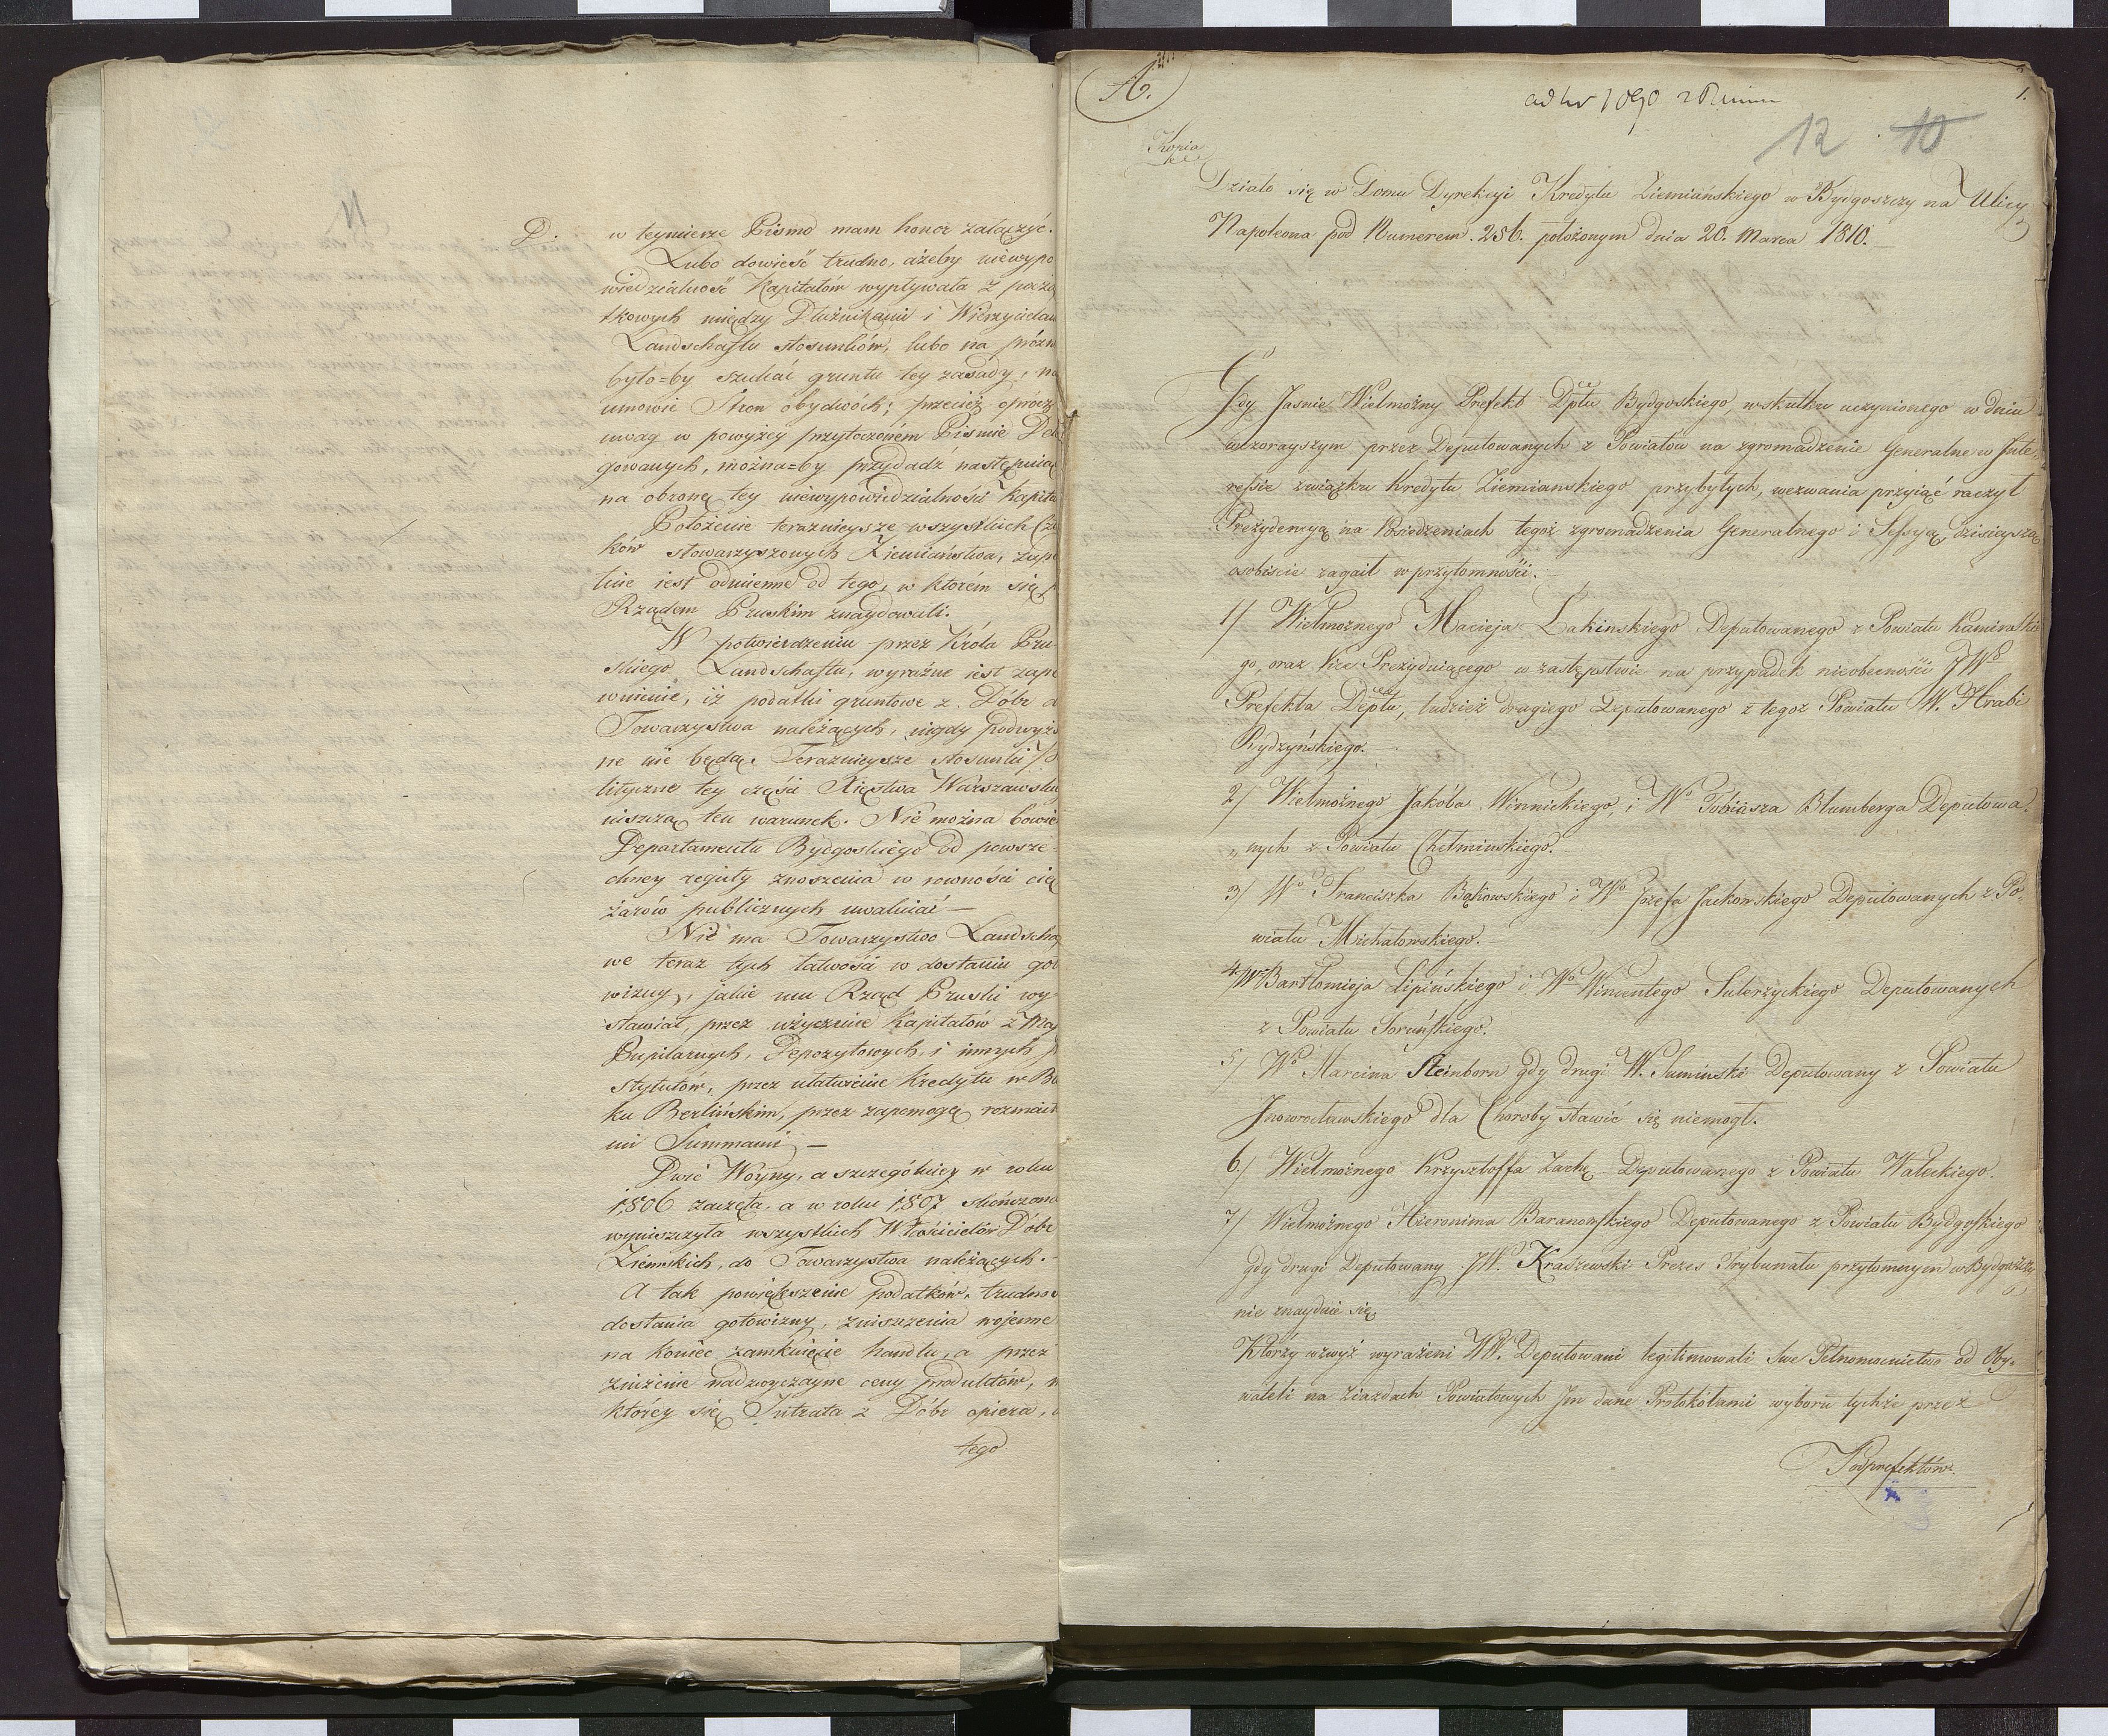 D. w teymierze Pismo mam honor załączyć.
Lubo dowieść trudno, ażeby niewypo
wiedzialność Kapitałow wypływała z począ
tkowych między Dłużnikami i Wierzycielam
Landschaftu stosunków, lubo na próżn
było=by szukać gruntu tey zasady, na
umowie Stron obydwóch; przecież oprócz
uwag w powyżey przytoczonem Pismie Dele
gowanych, można=by przydadź następuiąc
na obronę tey niewypowiedzialności Kapita
Położenie teraznieysze wszystkich Czł
ków stowarzyszonych Ziemiaństwa, zupe
łnie iest odmienne od tego, w ktorém się p
Rządem Pruskim znaydowali.
W potwierdzeniu przez Króla Pru-
skiego Landschaftu, wyraźne iest zape
wnienie, iż podatki gruntowe z Dóbr d
Towarzystwa należących, nigdy podwyżs
ne nie będą. Teraznieysze stosunki po
lityczne tey części Xięstwa Warszawski
niszczą ten warunek. Nie można bowie
Departamentu Bydgoskiego od powsze-
chney reguły znoszenia w rowności cię
żarów publicznych uwalniać —
Nie ma Towarzystwo Landschaf
we teraz tych łatwości w dostaniu goto
wizny, jakie mu Rząd Pruski wy-
stawiał, przez użyczenie Kapitałów z Mas
Pupilarnych, Depozytowych, i innych
stytutów, przez ułatwienie Kredytu w Ba
ku Berlińskim, przez zapomogę rozmait
mi Summami —
Dwie Woyny, a szczególniey w roku
1806 zaczęta, a w roku 1807 skończona
wyniszczyła wszystkich Właścicielów Dóbr
Ziemskich, do Towarzystwa należących. —
A tak powiększenie podatków, trudno
dostania gotowizny, zniszczenia wojenne
na koniec zamknięcie handlu, a przez
zniżenie nadzwyczayne ceny produktów, n
którey się Intrata z Dóbr opiera,
tego
11
A.
1.
12 10
Kopia
Działo się w Domu Dyrekcyi Kredytu Ziemiańskiego w Bydgoszczy na Ulicy
Napoleona pod Numerem. 256. położonym dnia 20. Marca 1810.
Gdy Jasnie Wielmożny Prefekt Dptu Bydgoskiego, w skutku uczynionego w dniu
wczorayszym przez Deputowanych z Powiatow na zgromadzenie Generalne w Inte-
ressie związku Kredytu Ziemianskiego przybyłych, wezwania przyiąć raczył
Prezydencyą na Posiedzeniach tegoż zgromadzenia Generalnego i Sessyą dzisieyszą
osobiscie zagaił w przytomności.
1/ Wielmożnego Macieja Łakinskiego Deputowanego z Powiatu Kamińskie
go, oraz Vice Prezyduiącego w zastępstwie na przypadek nieobecności JWo
Prefekta Deptu, tudzież drugiego Deputowanego z tegoż Powiatu W. Hrabi
Rydzyńskiego. —
2/ Wielmożnego Jakóba Winnickiego, i Wo Tobiasza Blumberga Deputowa-
„nych z Powiatu Chełminskiego.
3/ Wo Franciszka Bąkowskiego i Wo Józefa Jackowskiego Deputowanych z Po-
wiatu Michałowskiego. —
4/ Wo Bartłomieja Lipińskiego i Wo Wincentego Sulerzyckiego Deputowanych
z Powiatu Toruńskiego.
5/ Wo Marcina Steinborn gdy drugi W. Sumiński Deputowany z Powiatu
Inowrocławskiego dla Choroby stawić się niemogł.
6./ Wielmożnego Krzysztoffa Zachę Deputowanego z Powiatu Wałeckiego.
7/ Wielmożnego Hieronima Baranowskiego Deputowanego z Powiatu Bydgoskiego
gdy drugi Deputowany JW. Kradzewski Prezes Trybunału przytomnym w Bydgoszczy
nie znayduie się
Którzy wzwyż wyrażeni WW. Deputowani legitimowali swe Pełnomocnictwo od Oby-
wateli na Ziazdach Powiatowych Im dane Protokołami wyboru tychże przez
Podprefektów